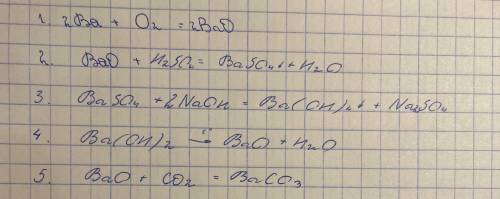 1. 2Ba + O2 = 2BaO
2. BaO + H2SO4 = BaSO4↓ + H2O
3. BaSO4 + 2NaOH = Ba(OH)2↓ + Na2SO4
4. Ba(OH)2 →t° BaO + H2O
5. BaO + CO2 = BaCO3